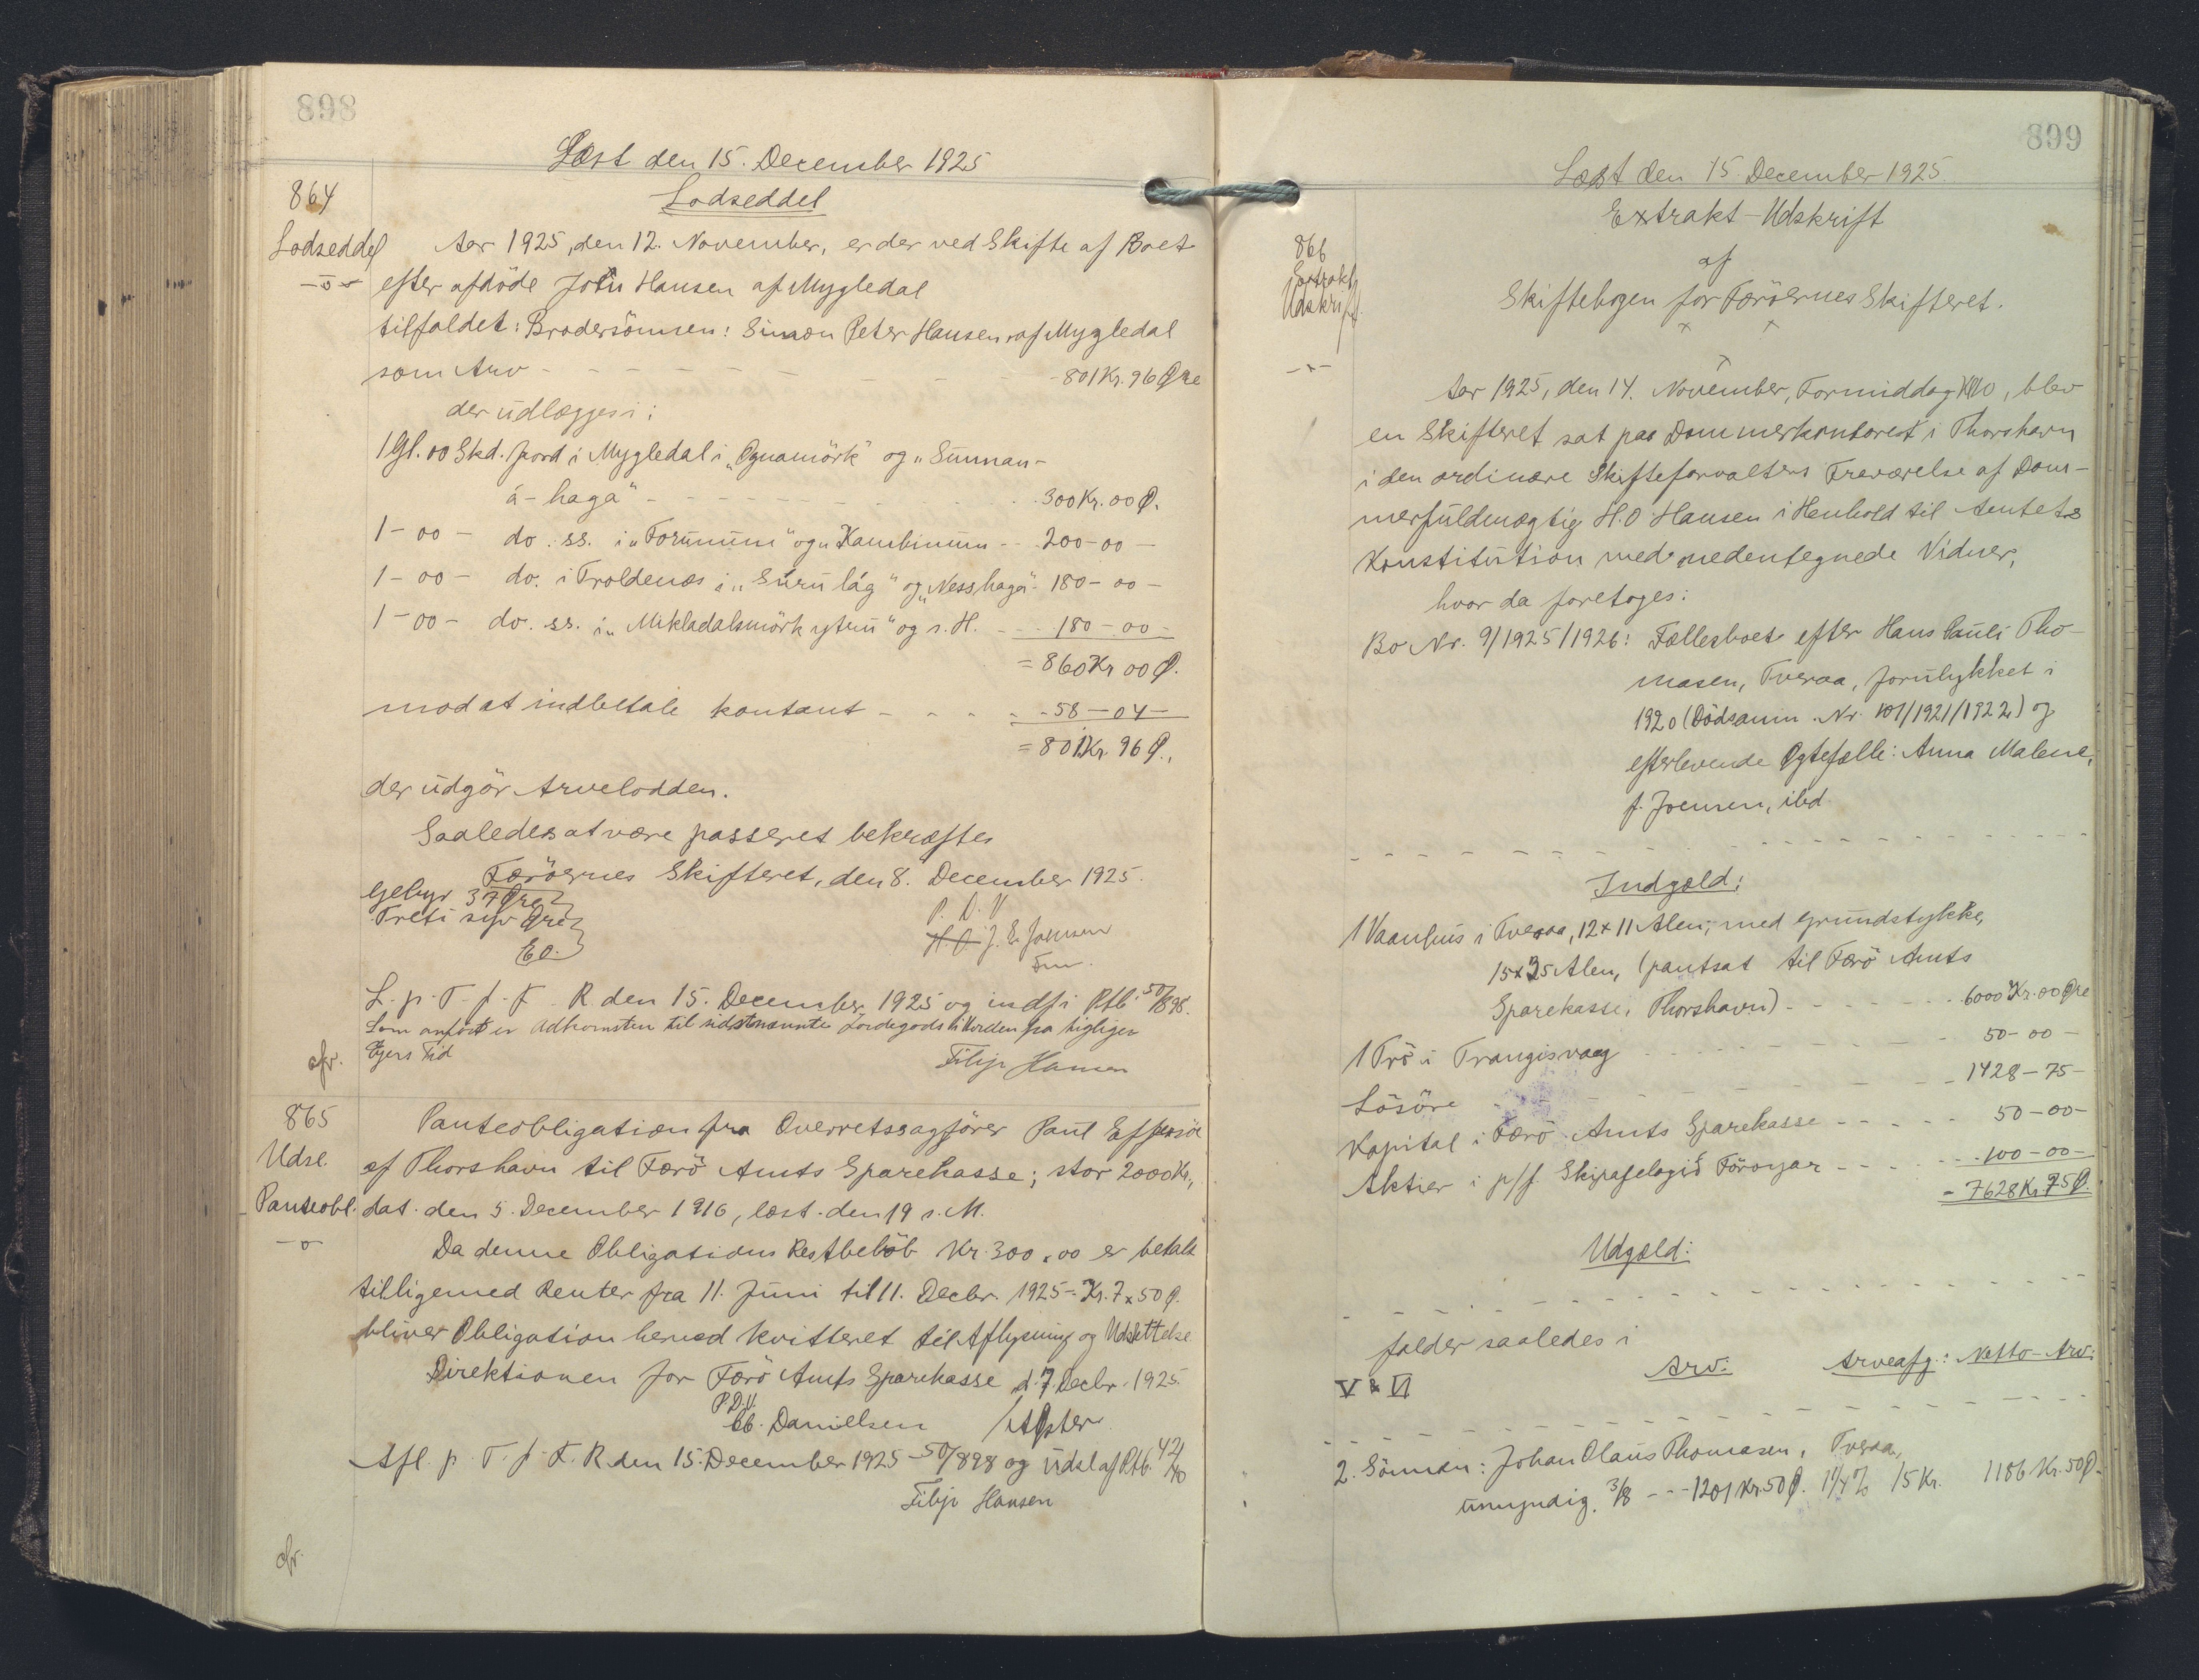 898
Læst den 15. December 1925
864
Lodseddel
Lodseddel
-o-
Aar 1925, den 12. November, er der ved Skifte af Boet
efter afdöde John Hansen af Mygledal
tilfaldet: Brodersönnen: Simon Peter Hansen af Mygledal
som Arv - - - - - - - - 801 Kr. 96 Øre
der udlægges i:
1 Gl. 00 Skd. Jord i Mygledal i „Ognamörk" og „Sunnan-
á-haga" - - - - - - - - 300 Kr. 00 Ø.
1 - 00 - do. ss. i „Forunum" og „Kambinum - - 200 - 00 -
1 - 00 - do. i Troldenæs i „Súrulág" og „Nesshaga" - 180 - 00 -
1 - 00 - do. ss. i „Mikladalsmörk ytru" og s. H. - - 180 - 00 -
= 860 Kr 00 Ø.
mod at indbetale kontant - - - - - 58 - 04 -
= 801 Kr. 96 Ø.,
der udgör Arvelodden.
Saaledes at være passeret bekræftes
Færöernes Skifteret, den 8. December 1925.
Gebyr 37 Øre
Treti syv Øre
EO.
P. D. V
H. O. J. E. Joensen
Fm.
L. p. T. f. F. R. den 15. December 1925 og indf. i Ptb. 50/898.
Som anført er Adkomsten til sidstnævnte Jordegods
Ejers Tid
Filip Hansen
afr.
865
Udsl.
Panteobl.
-o-
Panteobligation fra Overretssagförer Paul Effersöe
af Thorshavn til Færö Amts Sparekasse; stor 2000 Kr.,
dat. den 5. December 1916, læst. den 19 s. M.
Da denne Obligations Restbelöb Kr. 300,00 er betalt
tilligemed Renter fra 11. Juni til 11. Decbr. 1925 - Kr. 7 x 50 Ø.
bliver Obligation herved kvitteret til Aflysning og Udslettelse
Direktionen for Færö Amts Sparekasse d. 7. Decbr. 1925.
P.D.V.
Danielsen
Afl. p. T. f. F. R. den 15. December 1925 - 50/898 og udsl af Ptb. 42/40
Filip Hansen
afr.
899
Læst den 15. December 1925.
Extrakt-Udskrift
af
Skiftebogen for Færöernes Skifteret.
866
Extrakt
Udskrift.
-x-
Aar 1925, den 14. November, Formiddag Kl 10, blev
en Skifteret sat paa Dommerkontoret i Thorshavn
i den ordinære Skifteforvalters Fraværelse af Dom-
merfuldmægtig H. O. Hansen i Henhold til Amtets
Konstitution med nedentegnede Vidner,
hvor da foretoges:
Bo Nr. 9/1925/1926: Fællesboet efter Hans Pauli Tho-
masen, Tveraa, forulykket i
1920 (Dödsanm. Nr. 101/1921/1922) og
efterlevende Ægtefælle: Anna Malene,
f. Joensen, ibd.
Indgæld:
1 Vaanhus i Tveraa, 12 x 11 Alen, med Grundstykke,
15 x 35 Alen, (pantsat til Færö Amts
Sparekasse, Thorshavn) - - - - - - - 6000 Kr. 00 Øre
1 Trö i Trangisvaag - - - - - - - - 50 - 00 -
Lösöre - - - - - - - - 1428 - 75 -
Kapital i Færö Amts Sparekasse - - - - 50 - 00 -
Aktier i p/f. Skipafelagið Föroyar - - - - - 100 - 00 -
= 7628 Kr. 75 Ø.
Udgæld:
falder saaledes i
Arv: Arveafg.: Netto-Arv:
V & VI
2. Sönnen: Johan Olaus Thomasen, Tveraa,
umyndig. 3/8 - - - 1201 Kr. 50 Ø. 1 1/4 % 15 Kr. 1186 Kr. 50 Ø.